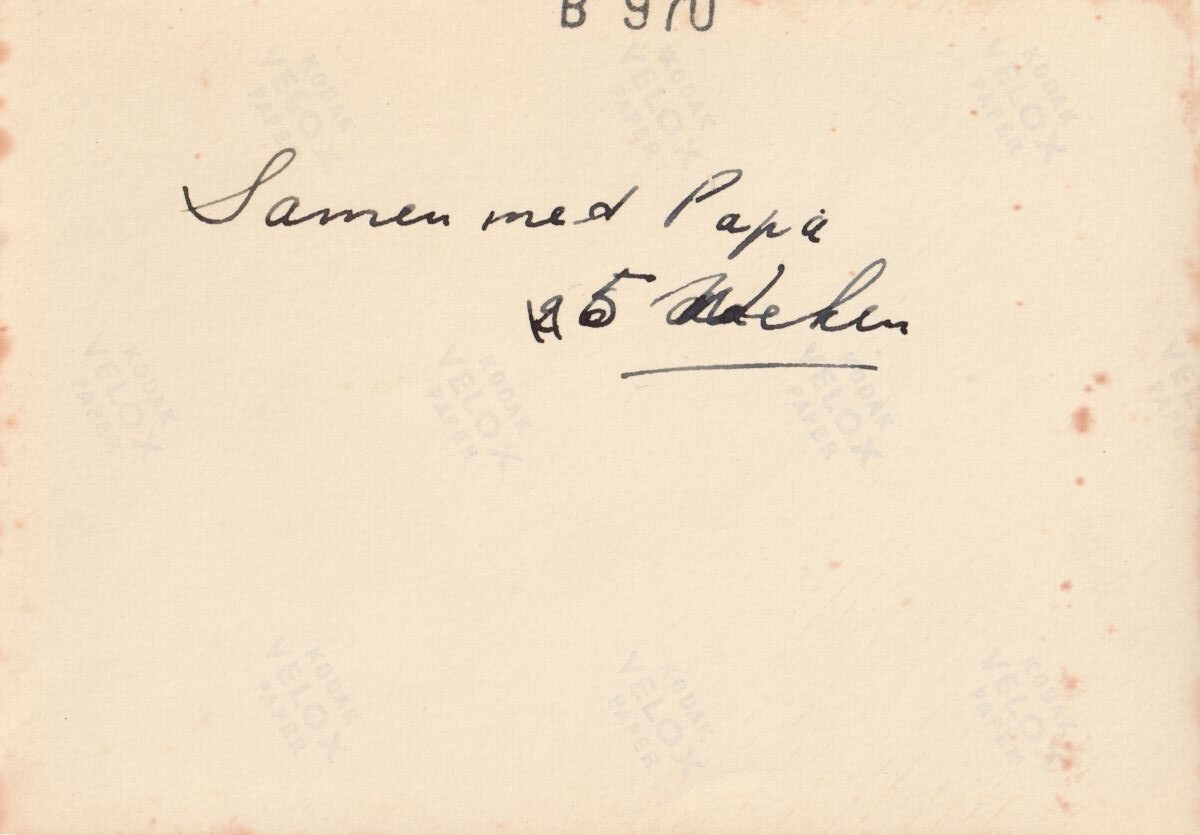 B 970
KODAK
VELOX
PAPER
KODAK
VELOX
PAPER
KODAK
VELOX
PAPER
Samen met Papa
5 Weken
KODAK
VELOX
PAPER
KODAK
VELOX
PAPER
KODAK
VELOX
PAPER
KODAK
VELOX
PAPER
KODAK
VELOX
PAPER
KODAK
VELOX
PAPER